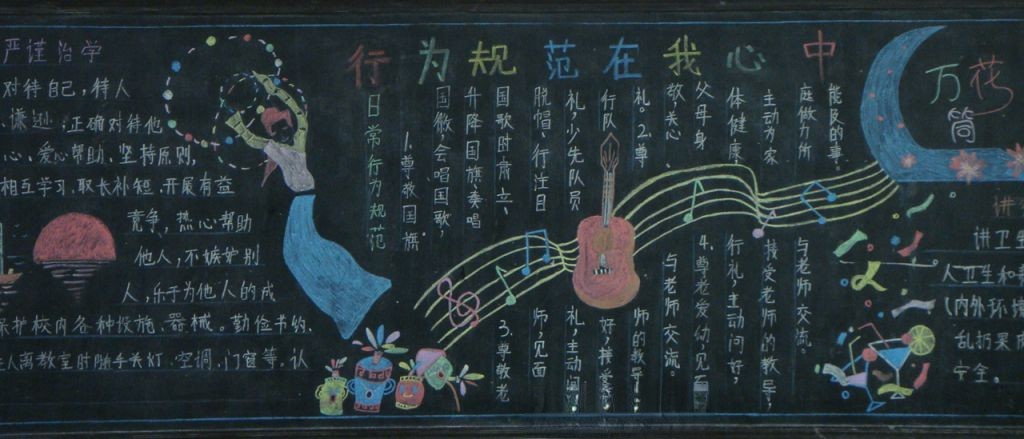 严谨治学
对待自己，待人
、谦逊，正确对待他
心、爱心帮助、坚持原则，
相互学习、取长补短、开展有益
竞争，热心帮助
他人，不嫉妒别
人，乐于为他人的成
保护校内各种设施、器械。勤俭书约、
人离教室时随手关灯、空调、门窗等。认
行为规范在我心中
日常行为规范
1.尊敬国旗、
国徽，会唱国歌，
升降国旗奏唱
国歌时肃立、
脱帽、行注目
礼，少先队员
行队
礼。2.尊
敬，关心
父母身
体健康
主动为家
庭做力所
能及的事。
3.尊敬老
师，见面
礼，主动问
好，接受
师的教导，
与老师交流。
4.尊老爱幼，见面
行礼，主动问好，
接受老师的教导，
与老师交流。
万花
筒
讲卫生
人卫生和
(内外环境
乱扔果皮
安全。